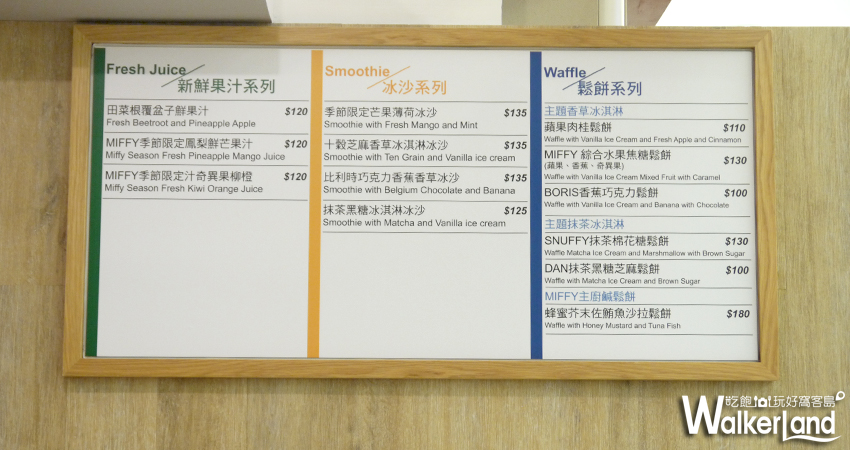 Fresh Juice
新鮮果汁系列
田菜根覆盆子鮮果汁 $120
Fresh Beetroot and Pineapple Apple
MIFFY季節限定鳳梨鮮芒果汁 $120
Miffy Season Fresh Pineapple Mango Juice
MIFFY季節限定汁奇異果柳橙 $120
Miffy Season Fresh Kiwi Orange Juice
Smoothie
冰沙系列
季節限定芒果薄荷冰沙 $135
Smoothie with Fresh Mango and Mint
十穀芝麻香草冰淇淋冰沙 $135
Smoothie with Ten Grain and Vanilla ice cream
比利時巧克力香蕉香草冰沙 $135
Smoothie with Belgium Chocolate and Banana
抹茶黑糖冰淇淋冰沙 $125
Smoothie with Matcha and Vanilla ice cream
Waffle
鬆餅系列
主題香草冰淇淋
蘋果肉桂鬆餅 $110
Waffle with Vanilla Ice Cream and Fresh Apple and Cinnamon
MIFFY 綜合水果焦糖鬆餅 $130
(蘋果、香蕉、奇異果)
Waffle with Vanilla Ice Cream Mixed Fruit with Caramel
BORIS香蕉巧克力鬆餅 $100
Waffle with Vanilla Ice Cream and Banana with Chocolate
主題抹茶冰淇淋
SNUFFY抹茶棉花糖鬆餅 $130
Waffle Matcha Ice Cream and Marshmallow with Brown Sugar
DAN抹茶黑糖芝麻鬆餅 $100
Waffle with Matcha Ice Cream and Brown Sugar
MIFFY主廚鹹鬆餅
蜂蜜芥末佐鮪魚沙拉鬆餅 $180
Waffle with Honey Mustard and Tuna Fish
吃飽玩好窩客島
WalkerLand